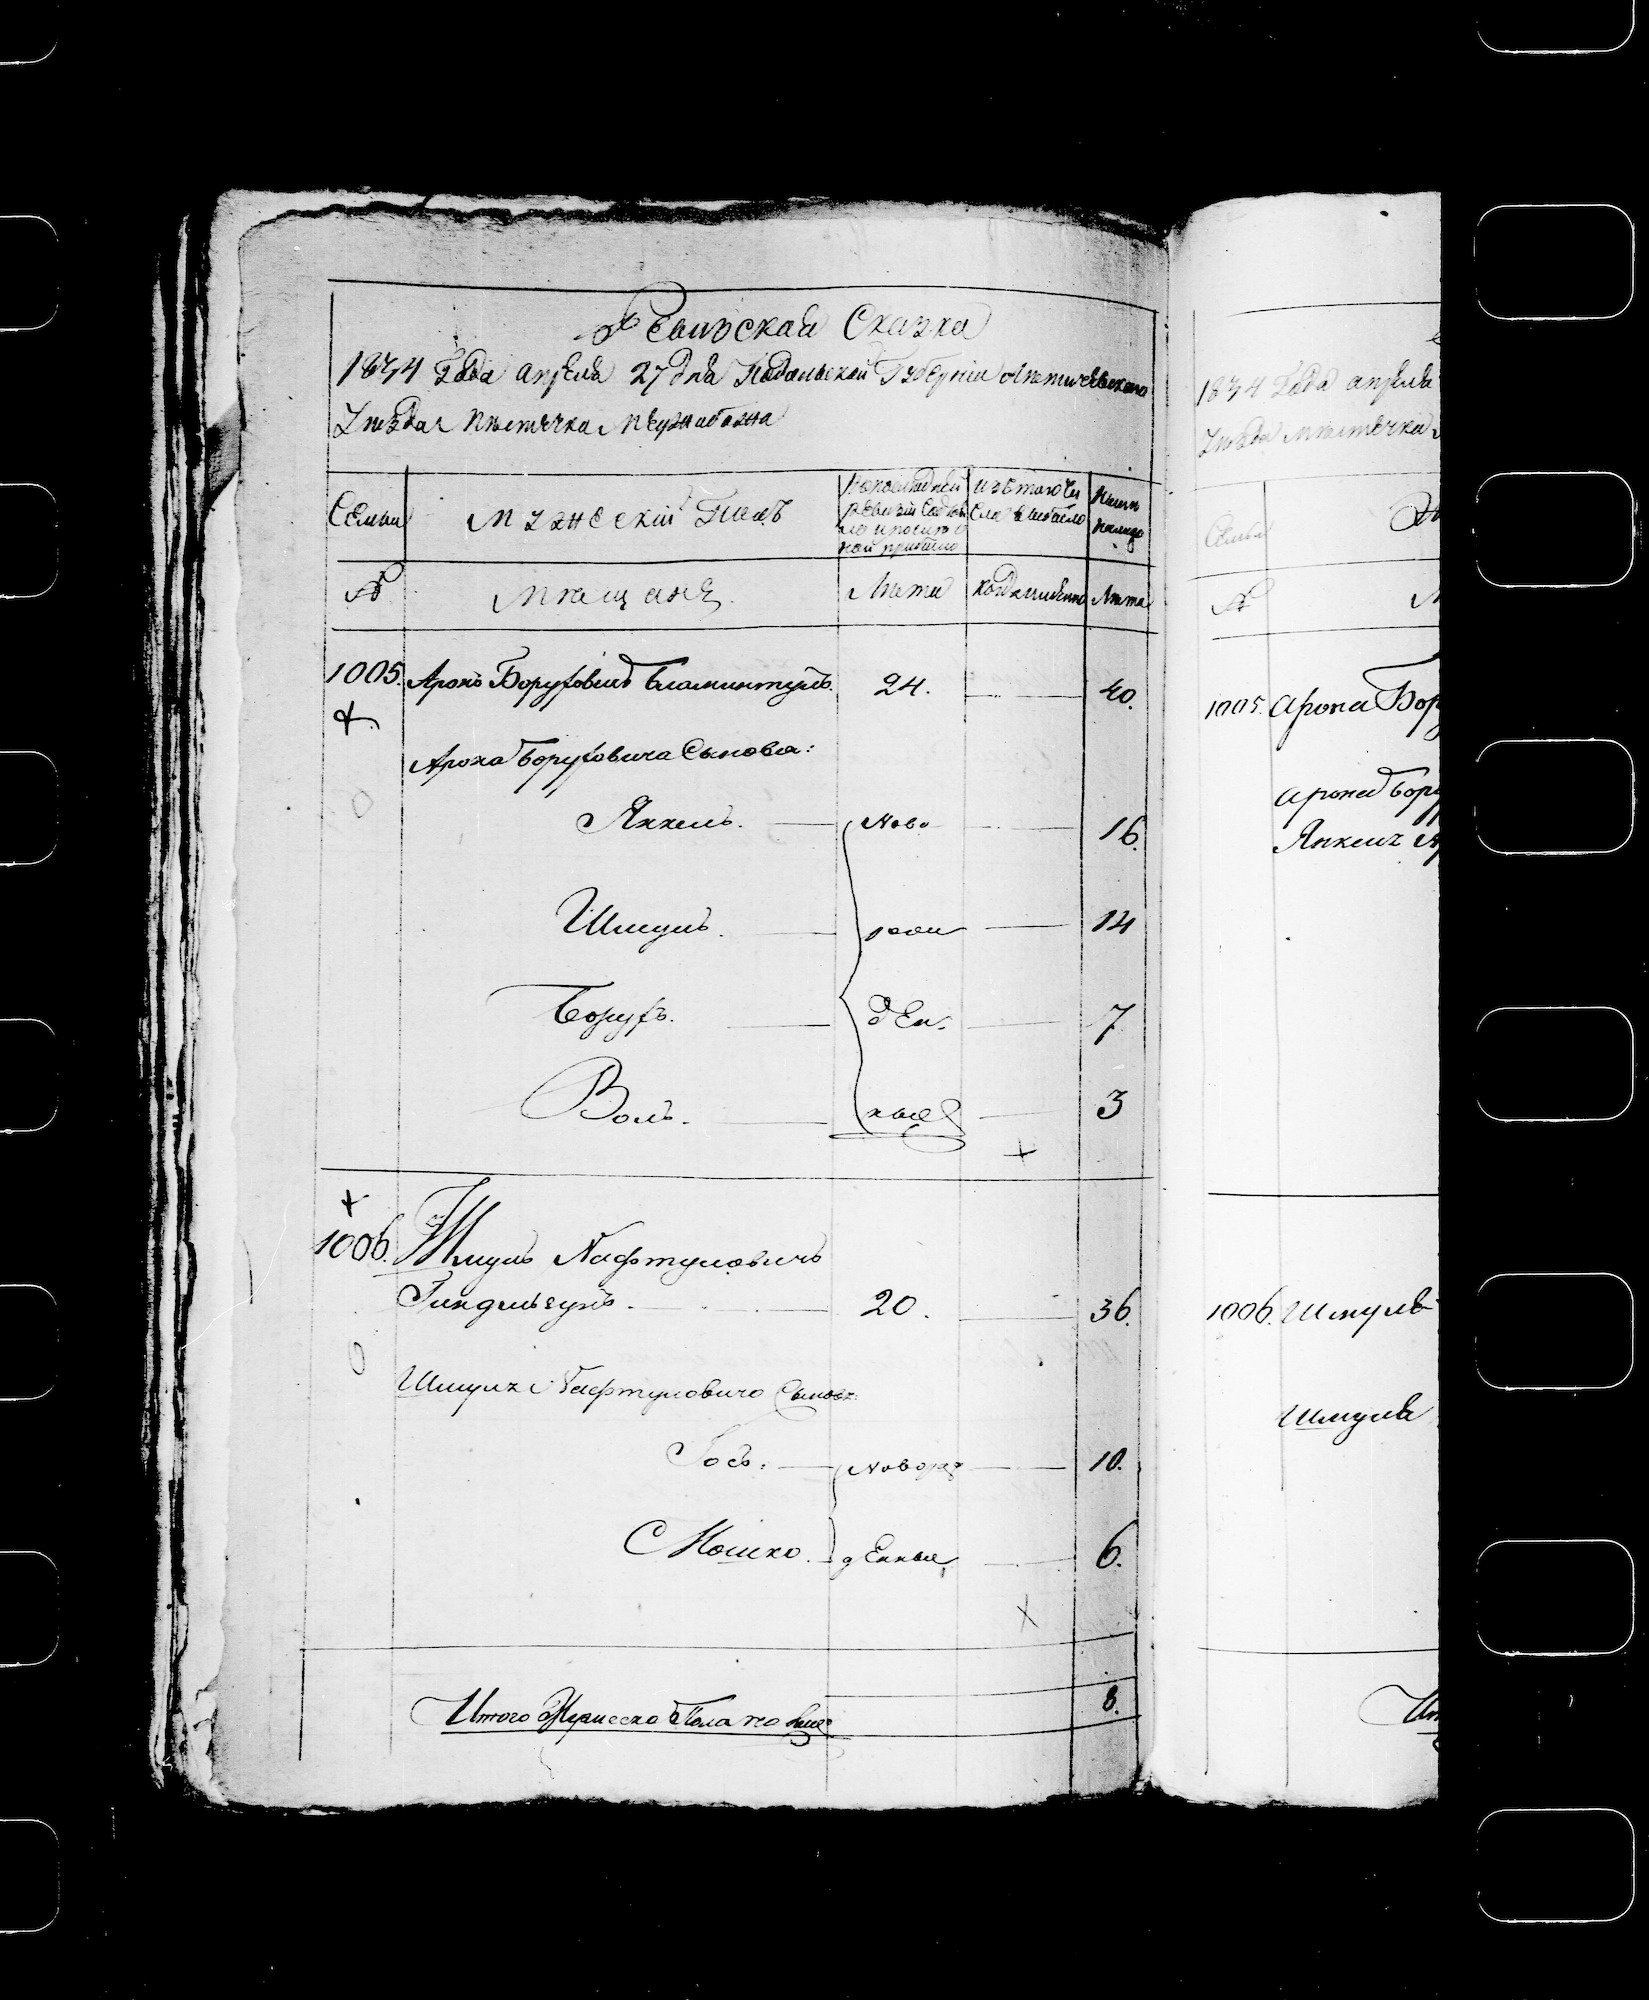 Ревизская Сказка
1834 Года апреля 27 дня Подольской Губернии Летичевскаго
Уезда Местечка Межибожа
Семьи
Мужеский Полъ
По последней
ревизии состоя
ло и после о
ной прибыло
Изъ того чи
сла выбыло
Ныне
налицо
№
Мещане
Лета
Когда именно
Лета
1005. Аронъ Боруховичъ 24. 40.
Арона Боруховича Сыновья:
Янкель. Ново 16.
Шмуль. рож 14
Борухъ. ден 7
Воль. ные 3
1006. Шмуль Нафтуловичъ
20. 36.
Шмуля Нафтуловича Сыновья
Иосъ. Новорож 10.
Мошко. денные 6.
Итого Мужеска Пола на лице 8.
1834 Года апреля
Уезда Местечка
Семьи
№
1005. Арона Бор
Арона Бору
Янкеля
1006. Шмуля
Шмуля